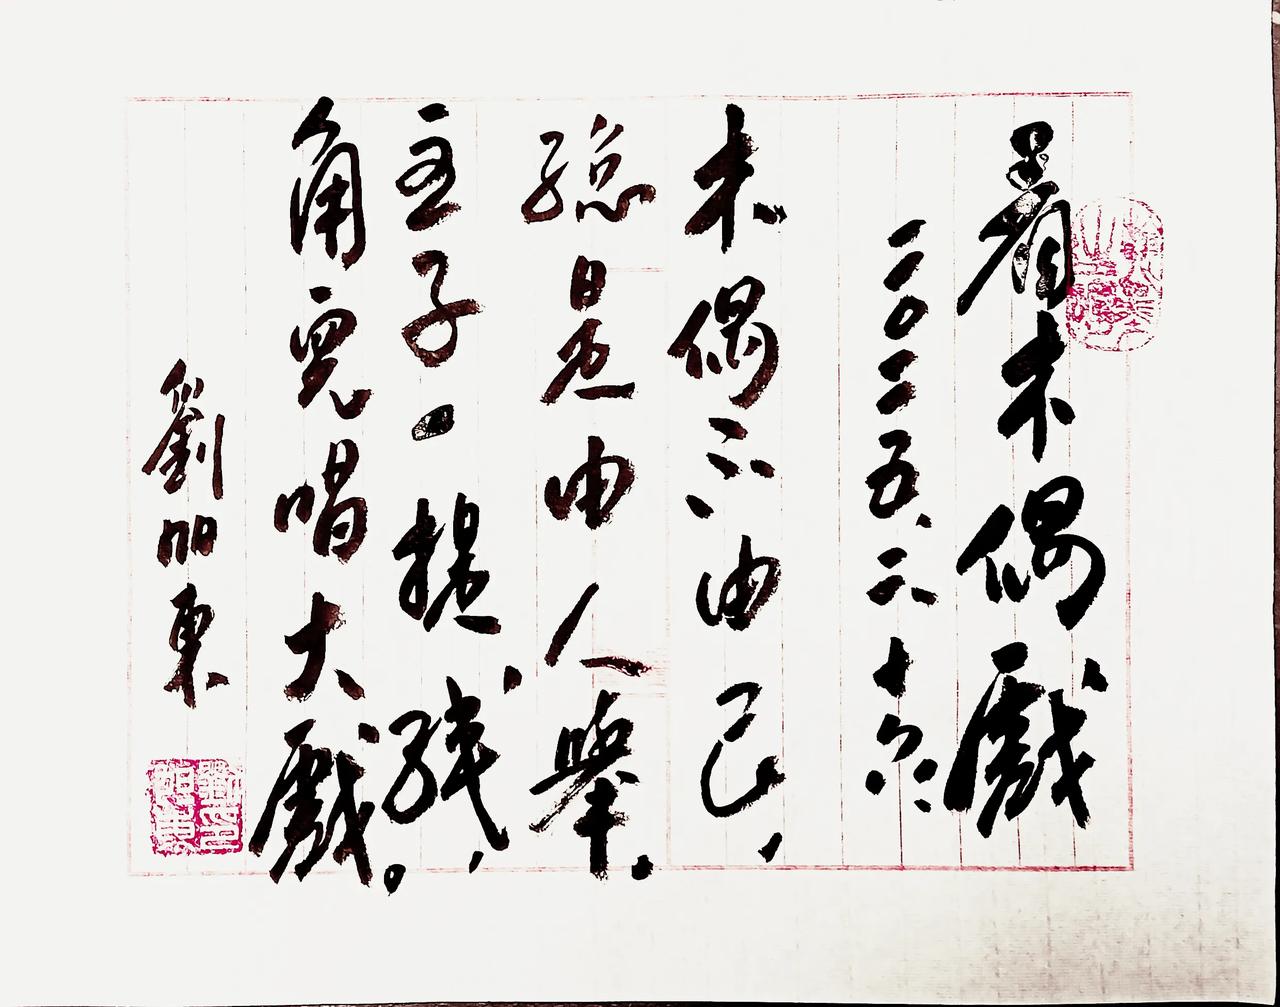 看木偶戲
二〇二五.二.十六
木偶不由己,
總是由人舉.
主子一提綫,
角兒唱大戲。
劉東